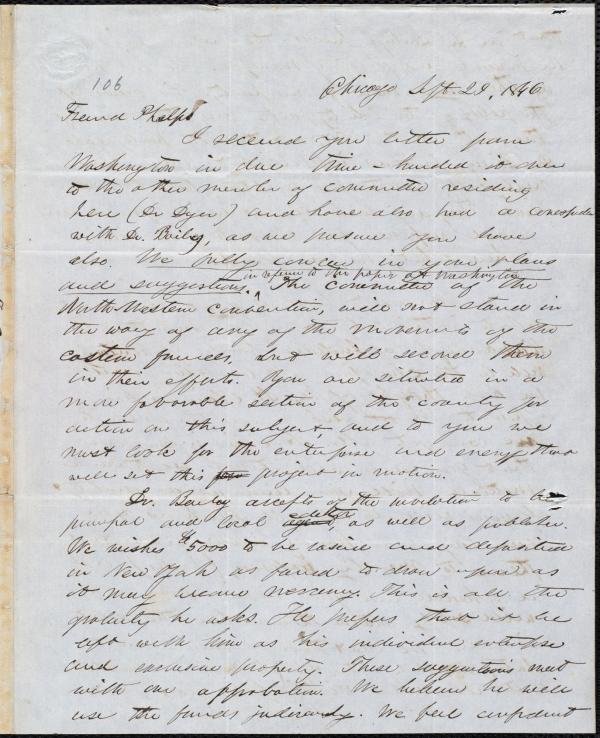 106
Chicago Sept. 29, 1846
Friend Phelps
I received you letter from
Washington in due time – handed it over
to the other member of committee residing
here (Dr Dyer) and have also had a
with Dr. Bailey, as we presume you have
also. We fully concur in your plans
in reference to the paper at Washington
and suggestions. The committee of the
North Western Convention, will not stand in
the way of any of the movements of the
eastern friends, but will second them
in their efforts. You are situated in a
more favorable section of the country for
action on this subject, and to you we
must look for the enterprise and energy that
will set this project in motion.
Dr. Bailey accepts of the invitation to be
principal and local editor, as well as publisher.
He wishes $5000 to be raised and deposited
in New York as fund to draw upon as
it may become necessary. This is all the
gratuity he asks. He prefers that it be
left with him as his individual enterprise
and exclusive property. These suggestions meet
with our approbation. We believe he will
use the funds judiciously. We feel confident